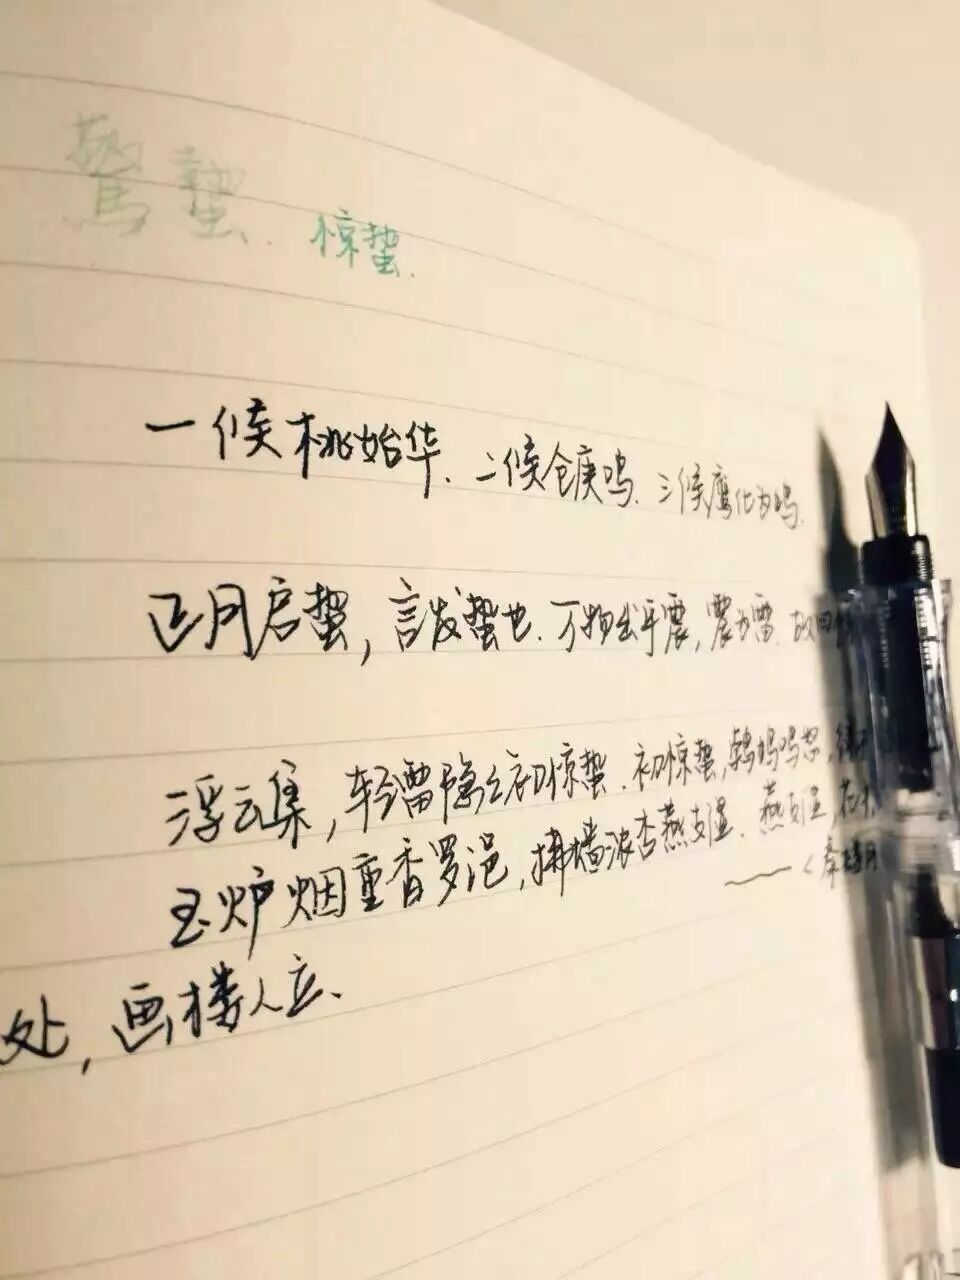 驚蟄. 惊蛰.
一候桃始华、二候仓庚鸣、三候鹰化为鸠.
正月启蛰，言发蛰也.万物出乎震，震为雷.故曰
浮云集，轻雷隐隐初惊蛰.初惊蛰，鹁鸠鸣怒，绿
玉炉烟重香罗浥，拂墙浓杏燕支湿.燕支湿，花
——《秦楼月
处，画楼人立.